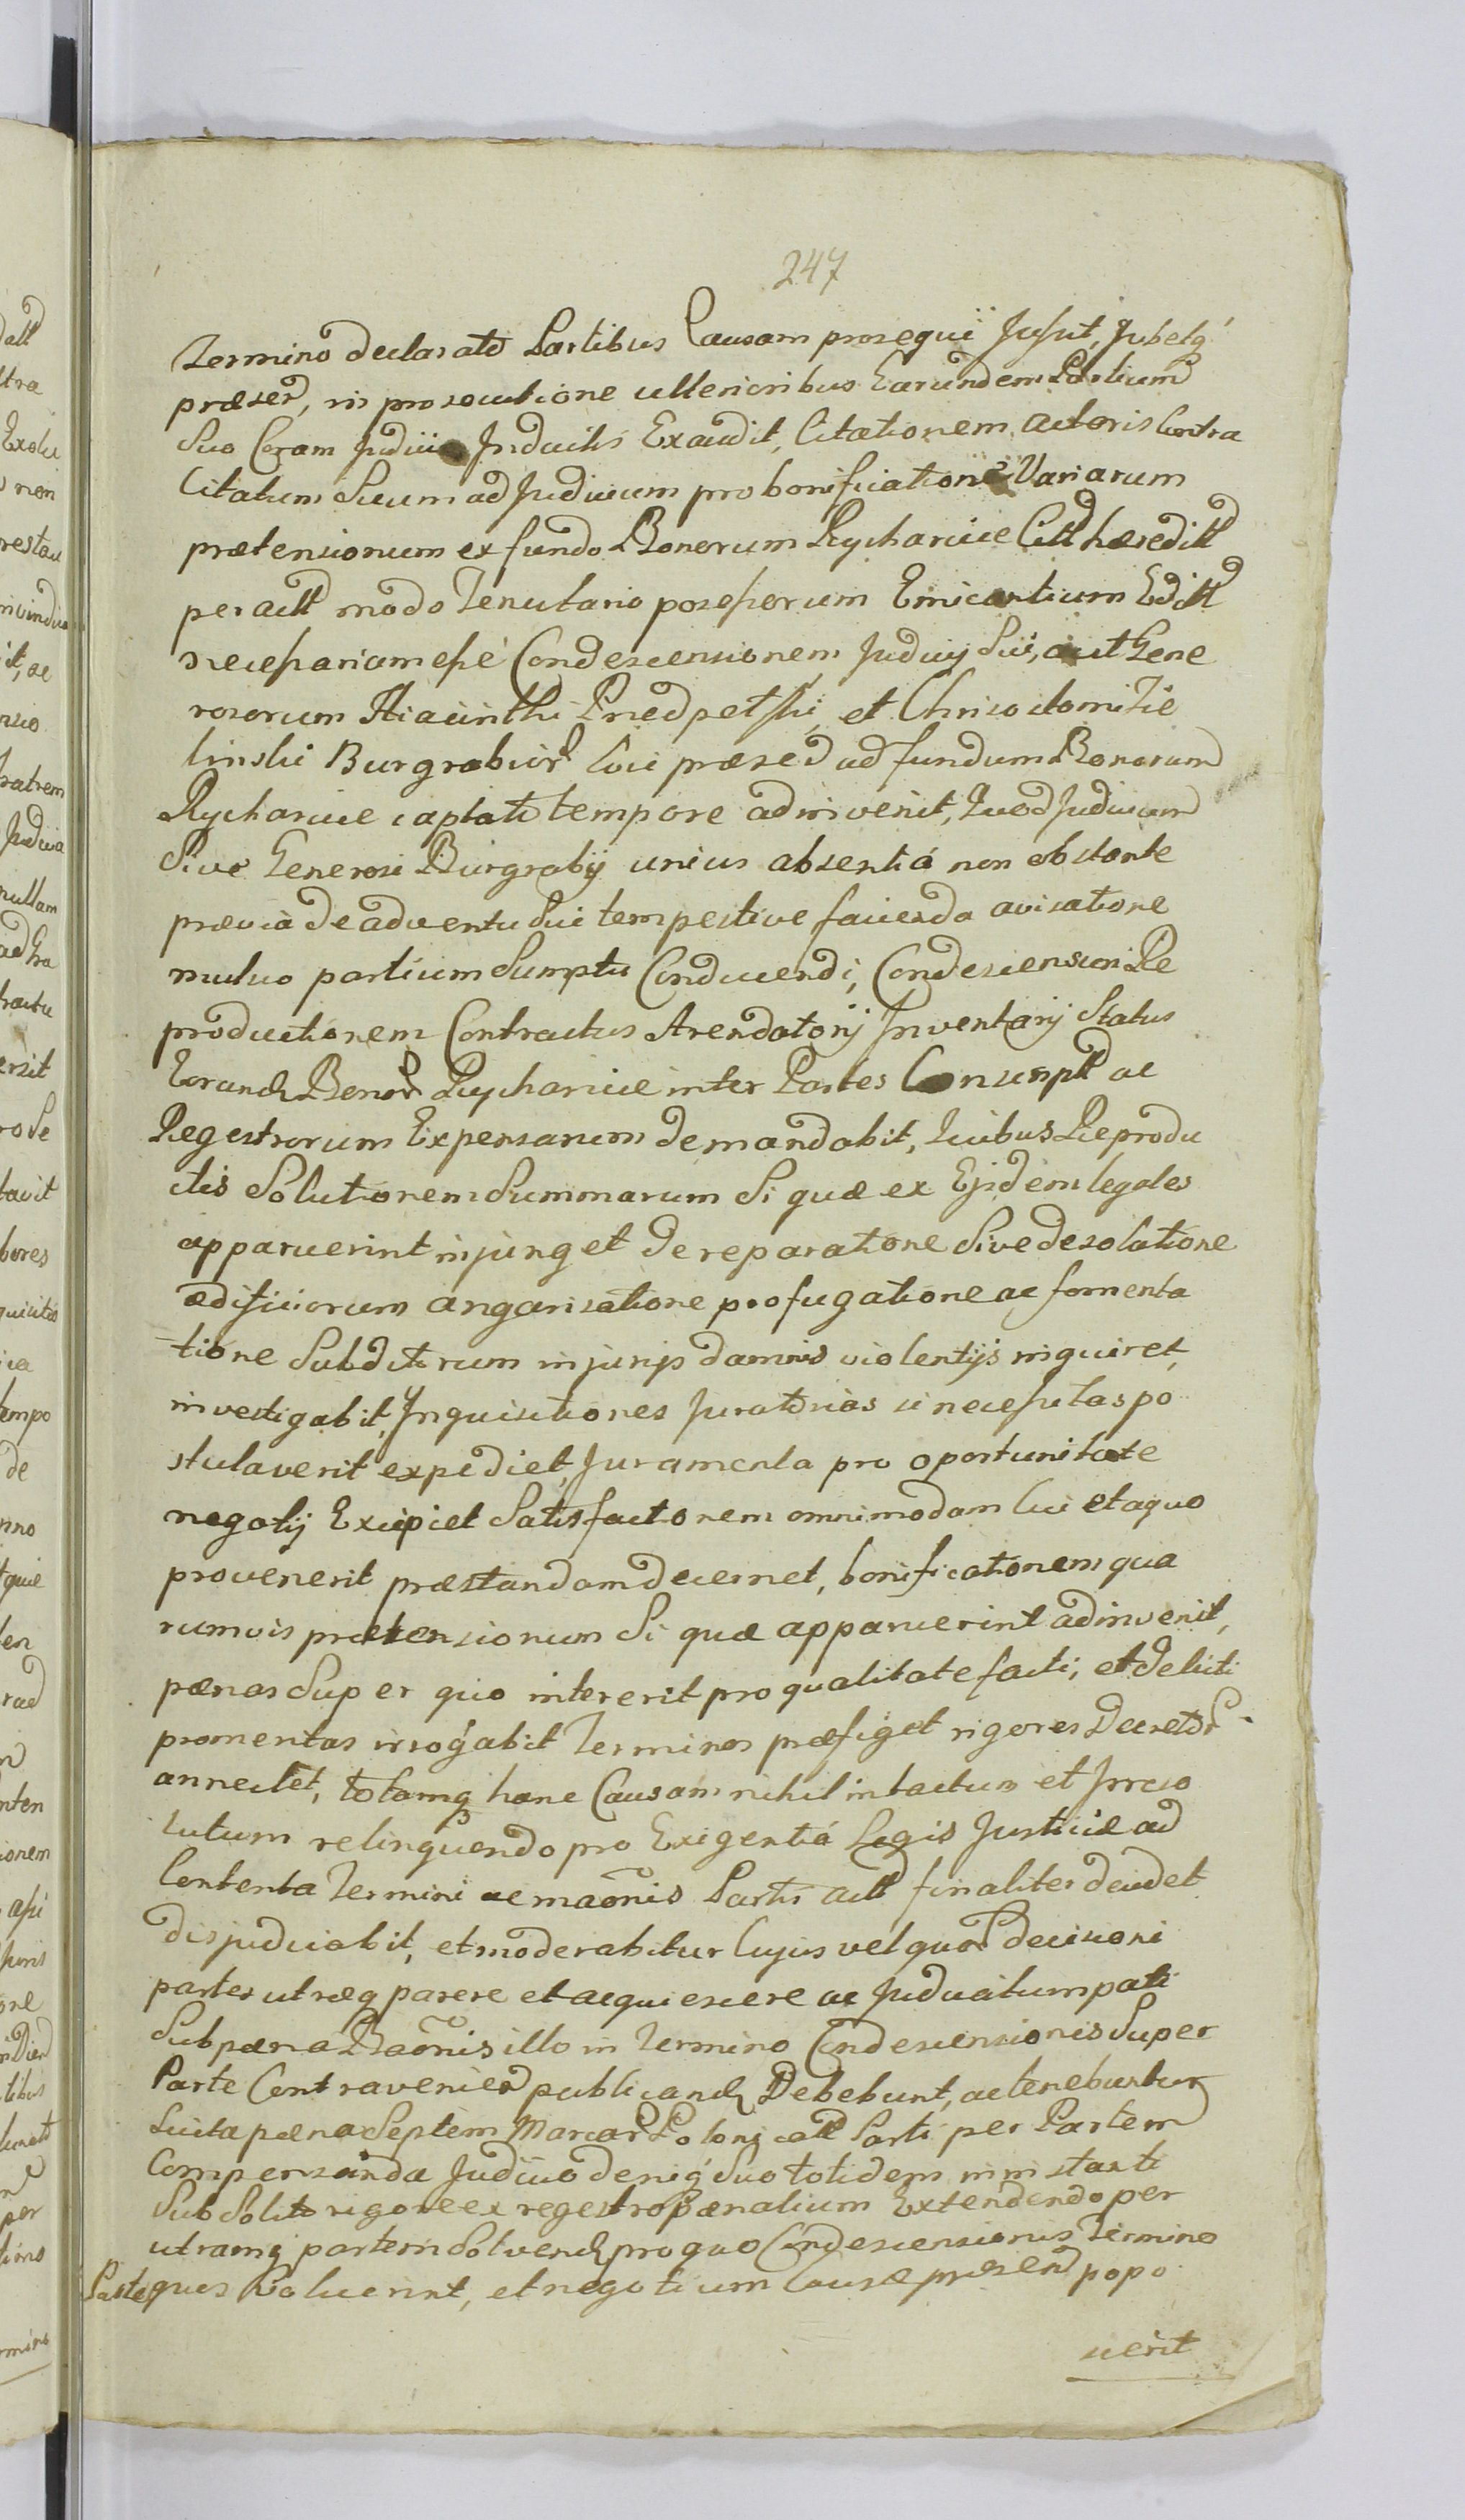 247
Termino declarato Partibus Causam prosequi Jussit, Jubetq
præsen, in prosecutione ulterioribus Earundem Partium
Suo Coram Judicio Inductis Exaudit, Citationem Actoris Contra
Citatum Suum ad Judicium pro bonificatione Variarum
prætensionum ex fundo Bonorum Rycharcice Citt hæreditt
per actt modo Tenutario possessorum Emicantium Editt
necessariam esse Condescensionem Judicij Sui, aut Gene
rosorum Hiacinthi Przedpetski, et Chrisostomi Zie
linski Burgrabior Loci præsen ad fundum Bonorum
Rycharcice captato tempore adinvenit, Quod Judicium
Sive Generosi Burgrabij unius absentiá non obstante
prævia de adventu Sui tempestive facienda avisatione
mutuo partium Sumptu Conducendi, Condescensuri Re
productionem Contractus Arendatorij Inventarij Status
Eorund Bonor Rycharcice inter Partes Conscript ac
Regestrorum Expensarum demandabit, Quibus Reprodu
ctis Solutionem Summarum Si quæ ex Ejsdem legales
apparuerint injunget de reparatione Sive desolatione
ædificiorum angarisatione profugatione ac fomenta
tione Subditorum injurijs damnis violentijs inquiret,
investigabit, Inquisitiones Juratorias si necessitas po
stulaverit expediet, Juramenta pro oportunitate
negotij Excipiet Satisfactionem omnimodam Cui et a quo
provenerit præstandam decernet, bonificationem qua
rumvis prætensionum Si quæ apparuerint adinvenit,
pænas Super quo intererit pro qualitate facti, et delicti
promeritas irrogabit Terminos præfiget rigores Decretor
annectet, totamq hanc Causam nihil intactum et Irreso
lutum relinquendo pro Exigentiá Legis Justiciæ ad
Contenta Termini ac mãonis Partis actt finaliter decidet
disjudicabit, et moderabitur Cujus vel quor decisioni
partes utræq parere et acquiescere ac Judicatum pati
Sub pæna Bãonis illo in Termino Condescensionis Super
Parte Contravenien publicand Debebunt, ac tenebuntur
Luita pæna Septem Marcar Polonicall Parti per Partem
Compensanda Judicio deniq Suo totidem in instanti
Sub Solito rigore ex regestro pænalium Extendendo per
utramq partem Solvend pro quo Condescensionis Termino
Partes ques Voluerint, et negotium Causæ præsen popo
scerit